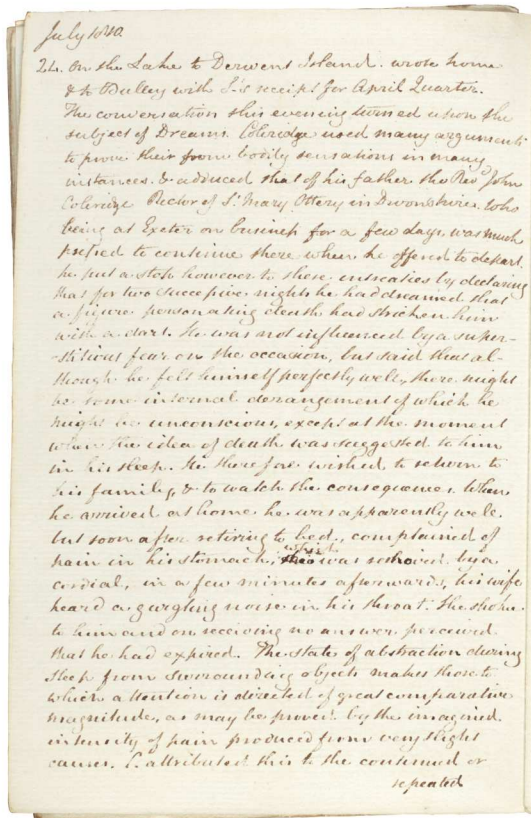 July 1810
24. On the Lake to Derwent Island. wrote home
& to Dulley with S's receipt for April Quarter.
The conversation this evening turned upon the
subject of Dreams. Coleridge used many arguments
to prove their from bodily sensations in many
instances. & adduced that of his father the Revd John
Coleridge Rector of St. Mary Ottery in Devonshire. Who
being at Exeter on business for a few days, was much
pressed to continue there when he offered to depart
he put a stop however to these entreaties by declaring
that for two successive nights he had dreamed that
a figure personating death had stricken him
with a dart. He was not influenced by a super-
-stitious fear on the occasion, but said that al-
though he felt himself perfectly well, there might
be some internal derangement of which he
might be unconscious, except at the moment
when the idea of death was suggested to him
in his sleep. He therefore wished to return to
his family, & to watch the consequences. When
he arrived at home he was apparently well.
but soon after retiring to bed, complained of
pain in his stomach, which was relieved by a
cordial, in a few minutes afterwards, his wife
heard a gurgling noise in his throat. She spoke
to him and on receiving no answer perceived
that he had expired. The state of abstraction during
sleep from surrounding objects makes those to
which attention is directed of great comparative
magnitude, as may be proved by the imagined
intensity of pain produced from very slight
causes. C. attributed this to the continued or
repeated